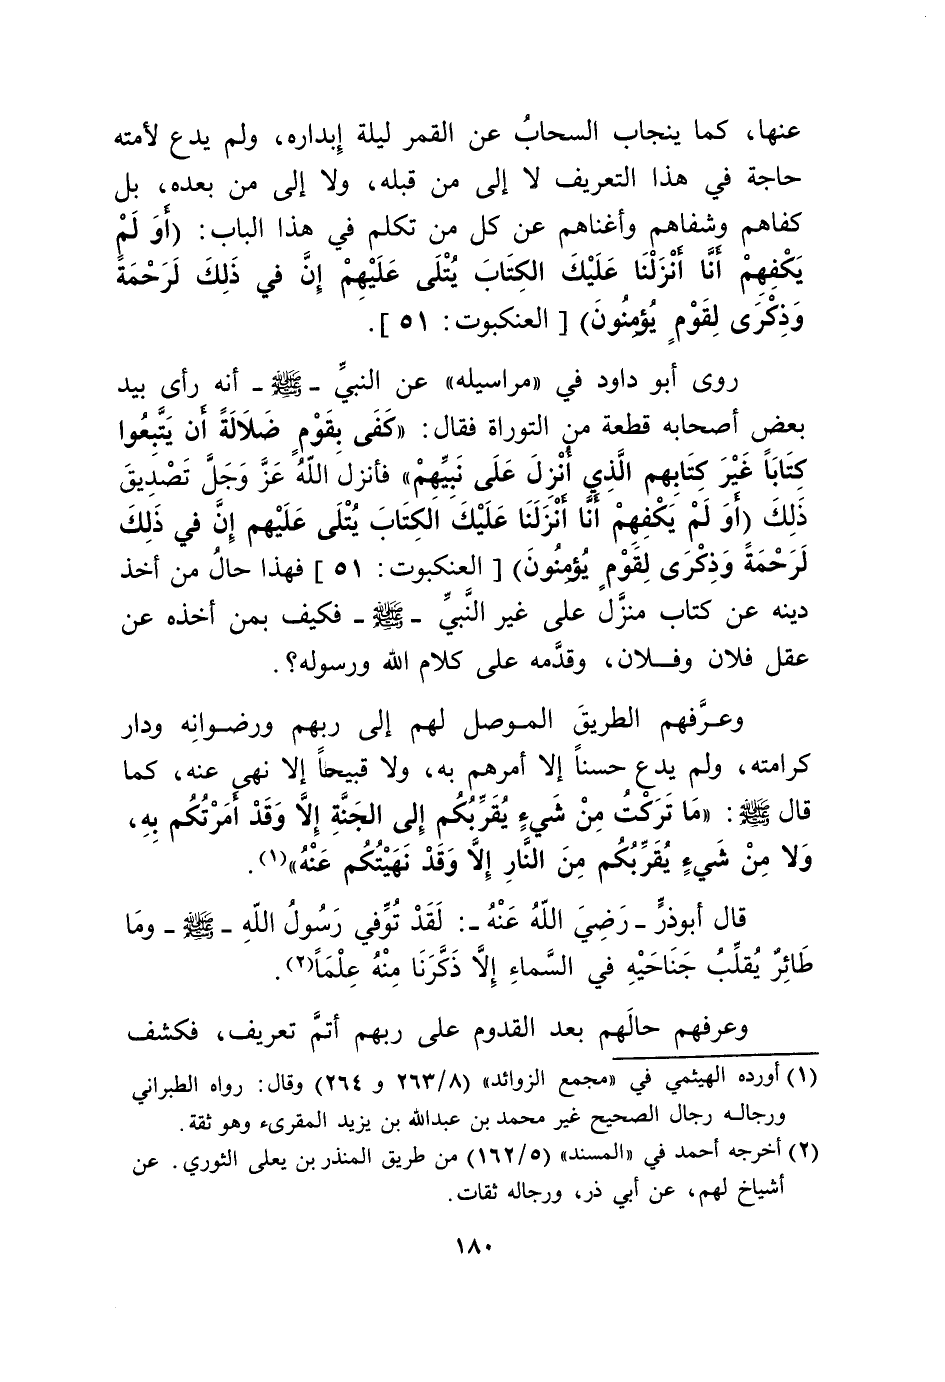 عنها، كما ينجاب السحابُ عن القمر ليلة إبداره، ولم يدع لأمته
حاجة في هذا التعريف لا إلى من قبله، ولا إلى من بعده، بل
كفاهم وشفاهم وأغناهم عن كل من تكلم في هذا الباب: (أَوَ لَمْ
يَكْفِهِمْ أَنَّا أَنْزَلْنَا عَلَيْكَ الكِتَابَ يُتْلَى عَلَيْهِمْ إِنَّ في ذَلِكَ لَرَحْمَةً
وَذِكْرَى لِقَوْمٍ يُؤمِنُونَ) [ العنكبوت: ٥١ ].
روى أبو داود في «مراسيله» عن النبيِّ ـ ﷺ ـ أنه رأى بيد
بعض أصحابه قطعة من التوراة فقال: «كَفَى بِقَوْمٍ ضَلَالَةً أَن يَتَّبِعُوا
كِتَابَاً غَيْرَ كِتَابِهِم الَّذِي أُنْزِلَ عَلَى نَبِيِّهِمْ» فأنزل اللّهُ عَزَّ وَجَلَّ تَصْدِيقَ
ذَلِكَ (أَوَ لَمْ يَكْفِهِمْ أَنَّا أَنْزَلَنَا عَلَيْكَ الكِتَابَ يُتْلَى عَلَيْهِم إِنَّ في ذَلِكَ
لَرَحْمَةً وَذِكْرَى لِقَوْمٍ يُؤمِنُونَ) [ العنكبوت: ٥١ ] فهذا حالُ من أخذ
دينه عن كتاب منزَّل على غير النَّبيِّ ـ ﷺ ـ فكيف بمن أخذه عن
عقل فلان وفــلان، وقدَّمه على كلام الله ورسوله؟.
وعـرَّفهم الطريقَ المـوصل لهم إلى ربهم ورضـوانِه ودار
كرامته، ولم يدع حسناً إلا أمرهم به، ولا قبيحاً إلا نهى عنه، كما
قال ﷺ: «مَا تَرَكْتُ مِنْ شَيءٍ يُقَرِّبُكُم إِلى الجَنَّةِ إِلَّا وَقَدْ أَمَرْتُكُم بِهِ،
وَلا مِنْ شَيءٍ يُقَرِّبُكُم مِنَ النَّارِ إِلَّا وَقَدْ نَهَيْتُكُم عَنْهُ»(١).
قال أبوذرٍّ ـ رَضِيَ اللّهُ عَنْهُ ـ: لَقَدْ تُوِّفي رَسُولُ اللّهِ ـ ﷺ ـ ومَا
طَائِرٌ يُقلِّبُ جَنَاحَيْهِ في السَّماءِ إِلَّا ذَكَّرَنَا مِنْهُ عِلْمَاً(٢).
وعرفهم حالَهم بعد القدوم على ربهم أتمَّ تعريف، فكشف
(١) أورده الهيثمي في «مجمع الزوائد» (٢٦٣/٨ و ٢٦٤) وقال: رواه الطبراني
ورجالـه رجال الصحيح غير محمد بن عبدالله بن يزيد المقرىء وهو ثقة.
(٢) أخرجه أحمد في «المسند» (١٦٢/٥) من طريق المنذر بن يعلى الثوري. عن
أشياخ لهم، عن أبي ذر، ورجاله ثقات.
١٨٠